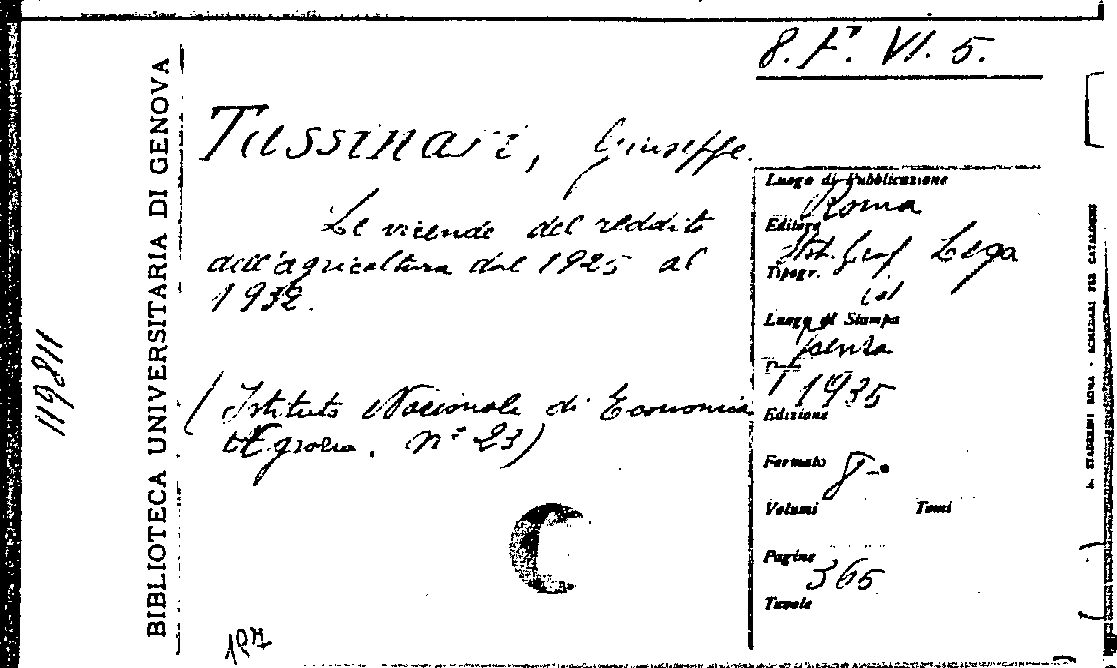 8. F. VI. 5.
BIBLIOTECA UNIVERSITARIA DI GENOVA
11981
Tassinari, Giuseppe.
Le vicende del reddito
dell'agricoltura dal 1925 al
1932.
(Istituto Nazionale di Economia
Agraria. n° 23)
197
Luogo di Pubblicazione
Roma
Editore
Stab. Graf. Lega
Tipogr.
id
Luogo di Stampa
Faenza
Data
1935
Edizione
Formato 8°
Volumi Tomi
Pagine
365
Tavole
A. STADERINI ROMA - SCHEDARI PER CATALOGHI